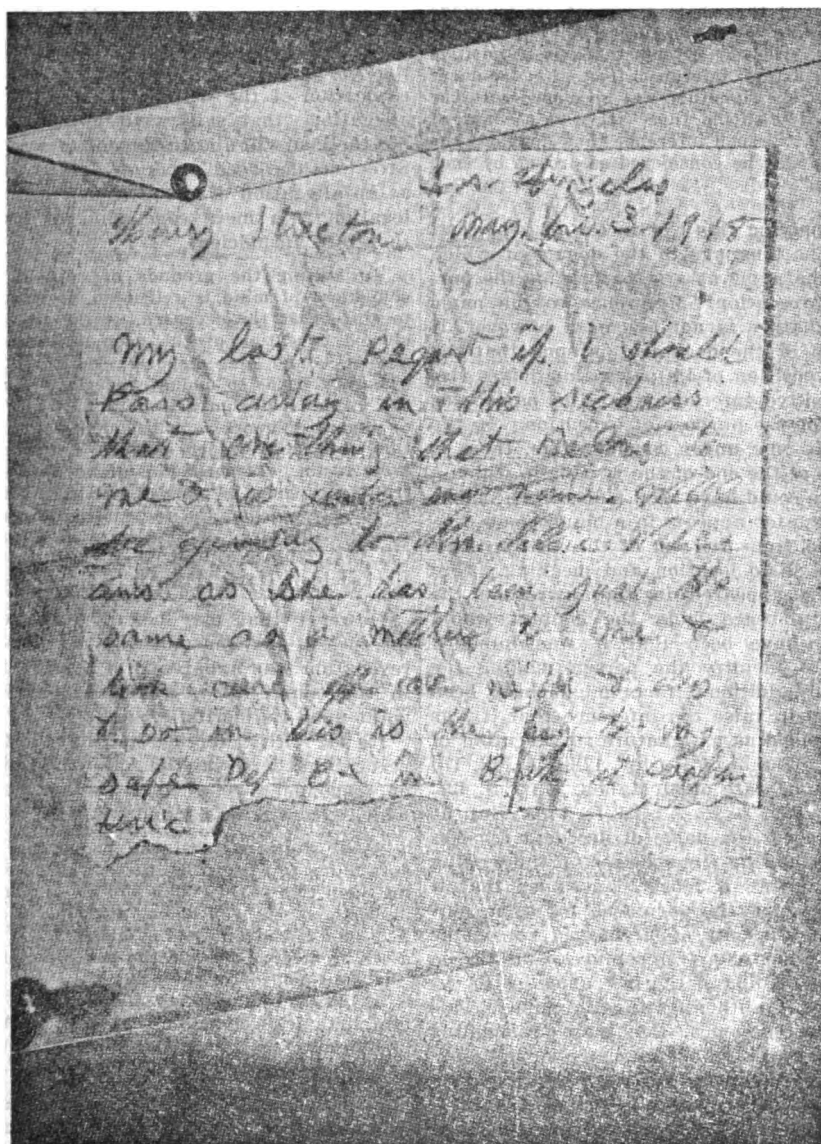 Los Angeles
Henry Stretton May. 3. 1918
My last Reqest if I should
Pass away in this sickness
that everthing that Belong to
me & is under my name. will
be to Mrs.
ams as she has been just the
same as a mother to me &
took care of me &
in is the key to my
safe Dep Box in Bank it